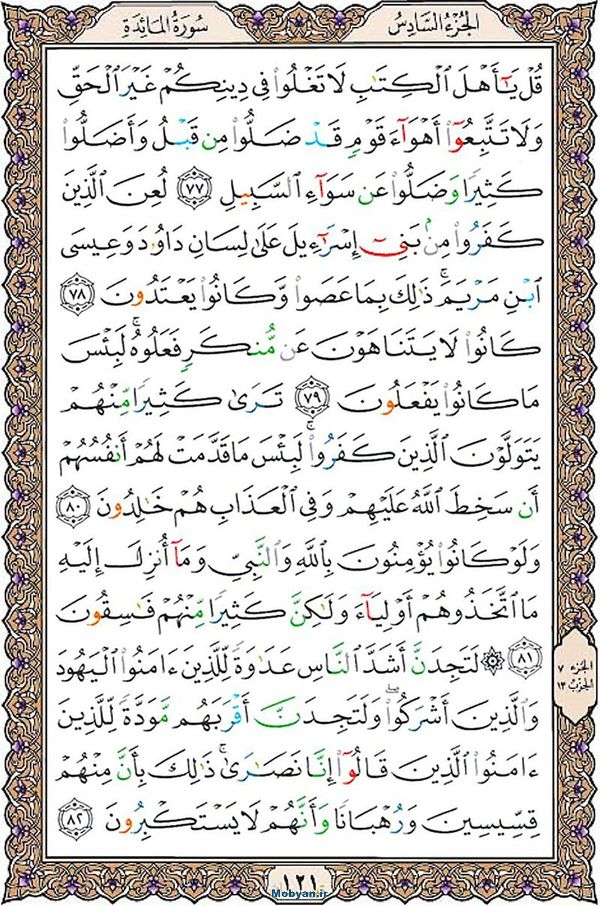 الجُزءُ السَّادِسُ
سُورَةُ المَائِدَةِ
قُلْ يَٰٓأَهْلَ ٱلْكِتَٰبِ لَا تَغْلُوا۟ فِى دِينِكُمْ غَيْرَ ٱلْحَقِّ
وَلَا تَتَّبِعُوٓا۟ أَهْوَآءَ قَوْمٍ قَدْ ضَلُّوا۟ مِن قَبْلُ وَأَضَلُّوا۟
كَثِيرًا وَضَلُّوا۟ عَن سَوَآءِ ٱلسَّبِيلِ ٧٧ لُعِنَ ٱلَّذِينَ
كَفَرُوا۟ مِنۢ بَنِىٓ إِسْرَٰٓءِيلَ عَلَىٰ لِسَانِ دَاوُۥدَ وَعِيسَى
ٱبْنِ مَرْيَمَ ۚ ذَٰلِكَ بِمَا عَصَوا۟ وَّكَانُوا۟ يَعْتَدُونَ ٧٨
كَانُوا۟ لَا يَتَنَاهَوْنَ عَن مُّنكَرٍ فَعَلُوهُ ۚ لَبِئْسَ
مَا كَانُوا۟ يَفْعَلُونَ ٧٩ تَرَىٰ كَثِيرًا مِّنْهُمْ
يَتَوَلَّوْنَ ٱلَّذِينَ كَفَرُوا۟ ۚ لَبِئْسَ مَا قَدَّمَتْ لَهُمْ أَنفُسُهُمْ
أَن سَخِطَ ٱللَّهُ عَلَيْهِمْ وَفِى ٱلْعَذَابِ هُمْ خَٰلِدُونَ ٨٠
وَلَوْ كَانُوا۟ يُؤْمِنُونَ بِٱللَّهِ وَٱلنَّبِىِّ وَمَآ أُنزِلَ إِلَيْهِ
مَا ٱتَّخَذُوهُمْ أَوْلِيَآءَ وَلَٰكِنَّ كَثِيرًا مِّنْهُمْ فَٰسِقُونَ
٨١ ۞ لَتَجِدَنَّ أَشَدَّ ٱلنَّاسِ عَدَٰوَةً لِّلَّذِينَ ءَامَنُوا۟ ٱلْيَهُودَ
وَٱلَّذِينَ أَشْرَكُوا۟ ۖ وَلَتَجِدَنَّ أَقْرَبَهُم مَّوَدَّةً لِّلَّذِينَ
ءَامَنُوا۟ ٱلَّذِينَ قَالُوٓا۟ إِنَّا نَصَٰرَىٰ ۚ ذَٰلِكَ بِأَنَّ مِنْهُمْ
قِسِّيسِينَ وَرُهْبَانًا وَأَنَّهُمْ لَا يَسْتَكْبِرُونَ ٨٢
الجزء ٧
الحزب ١٣
١٢١
Mobyan.ir